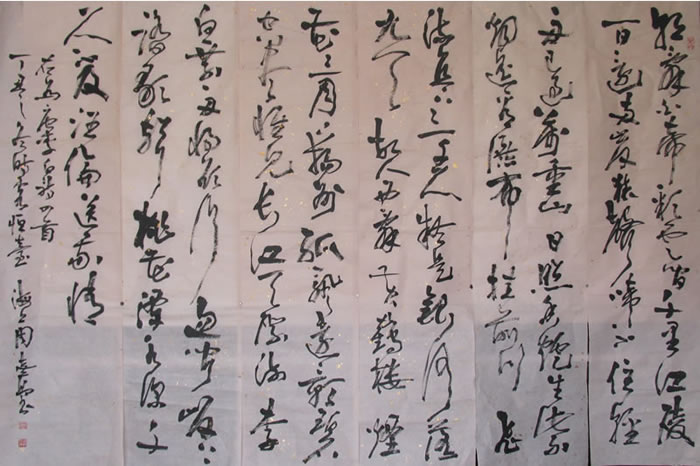 朝辞白帝彩云间千里江陵
一日还两岸猿声啼不住轻
舟已过万重山日照香炉生紫
烟遥看瀑布挂前川飞
流直下三千尺疑是银河落
九天故人西辞黄鹤楼烟
花三月下扬州孤帆远影碧
空尽惟见长江天际流李
白乘舟将欲行忽闻岸上
踏歌声桃花潭水深千
尺不及汪伦送我情
右书唐李白诗四首
丁丑之冬时客 海上周